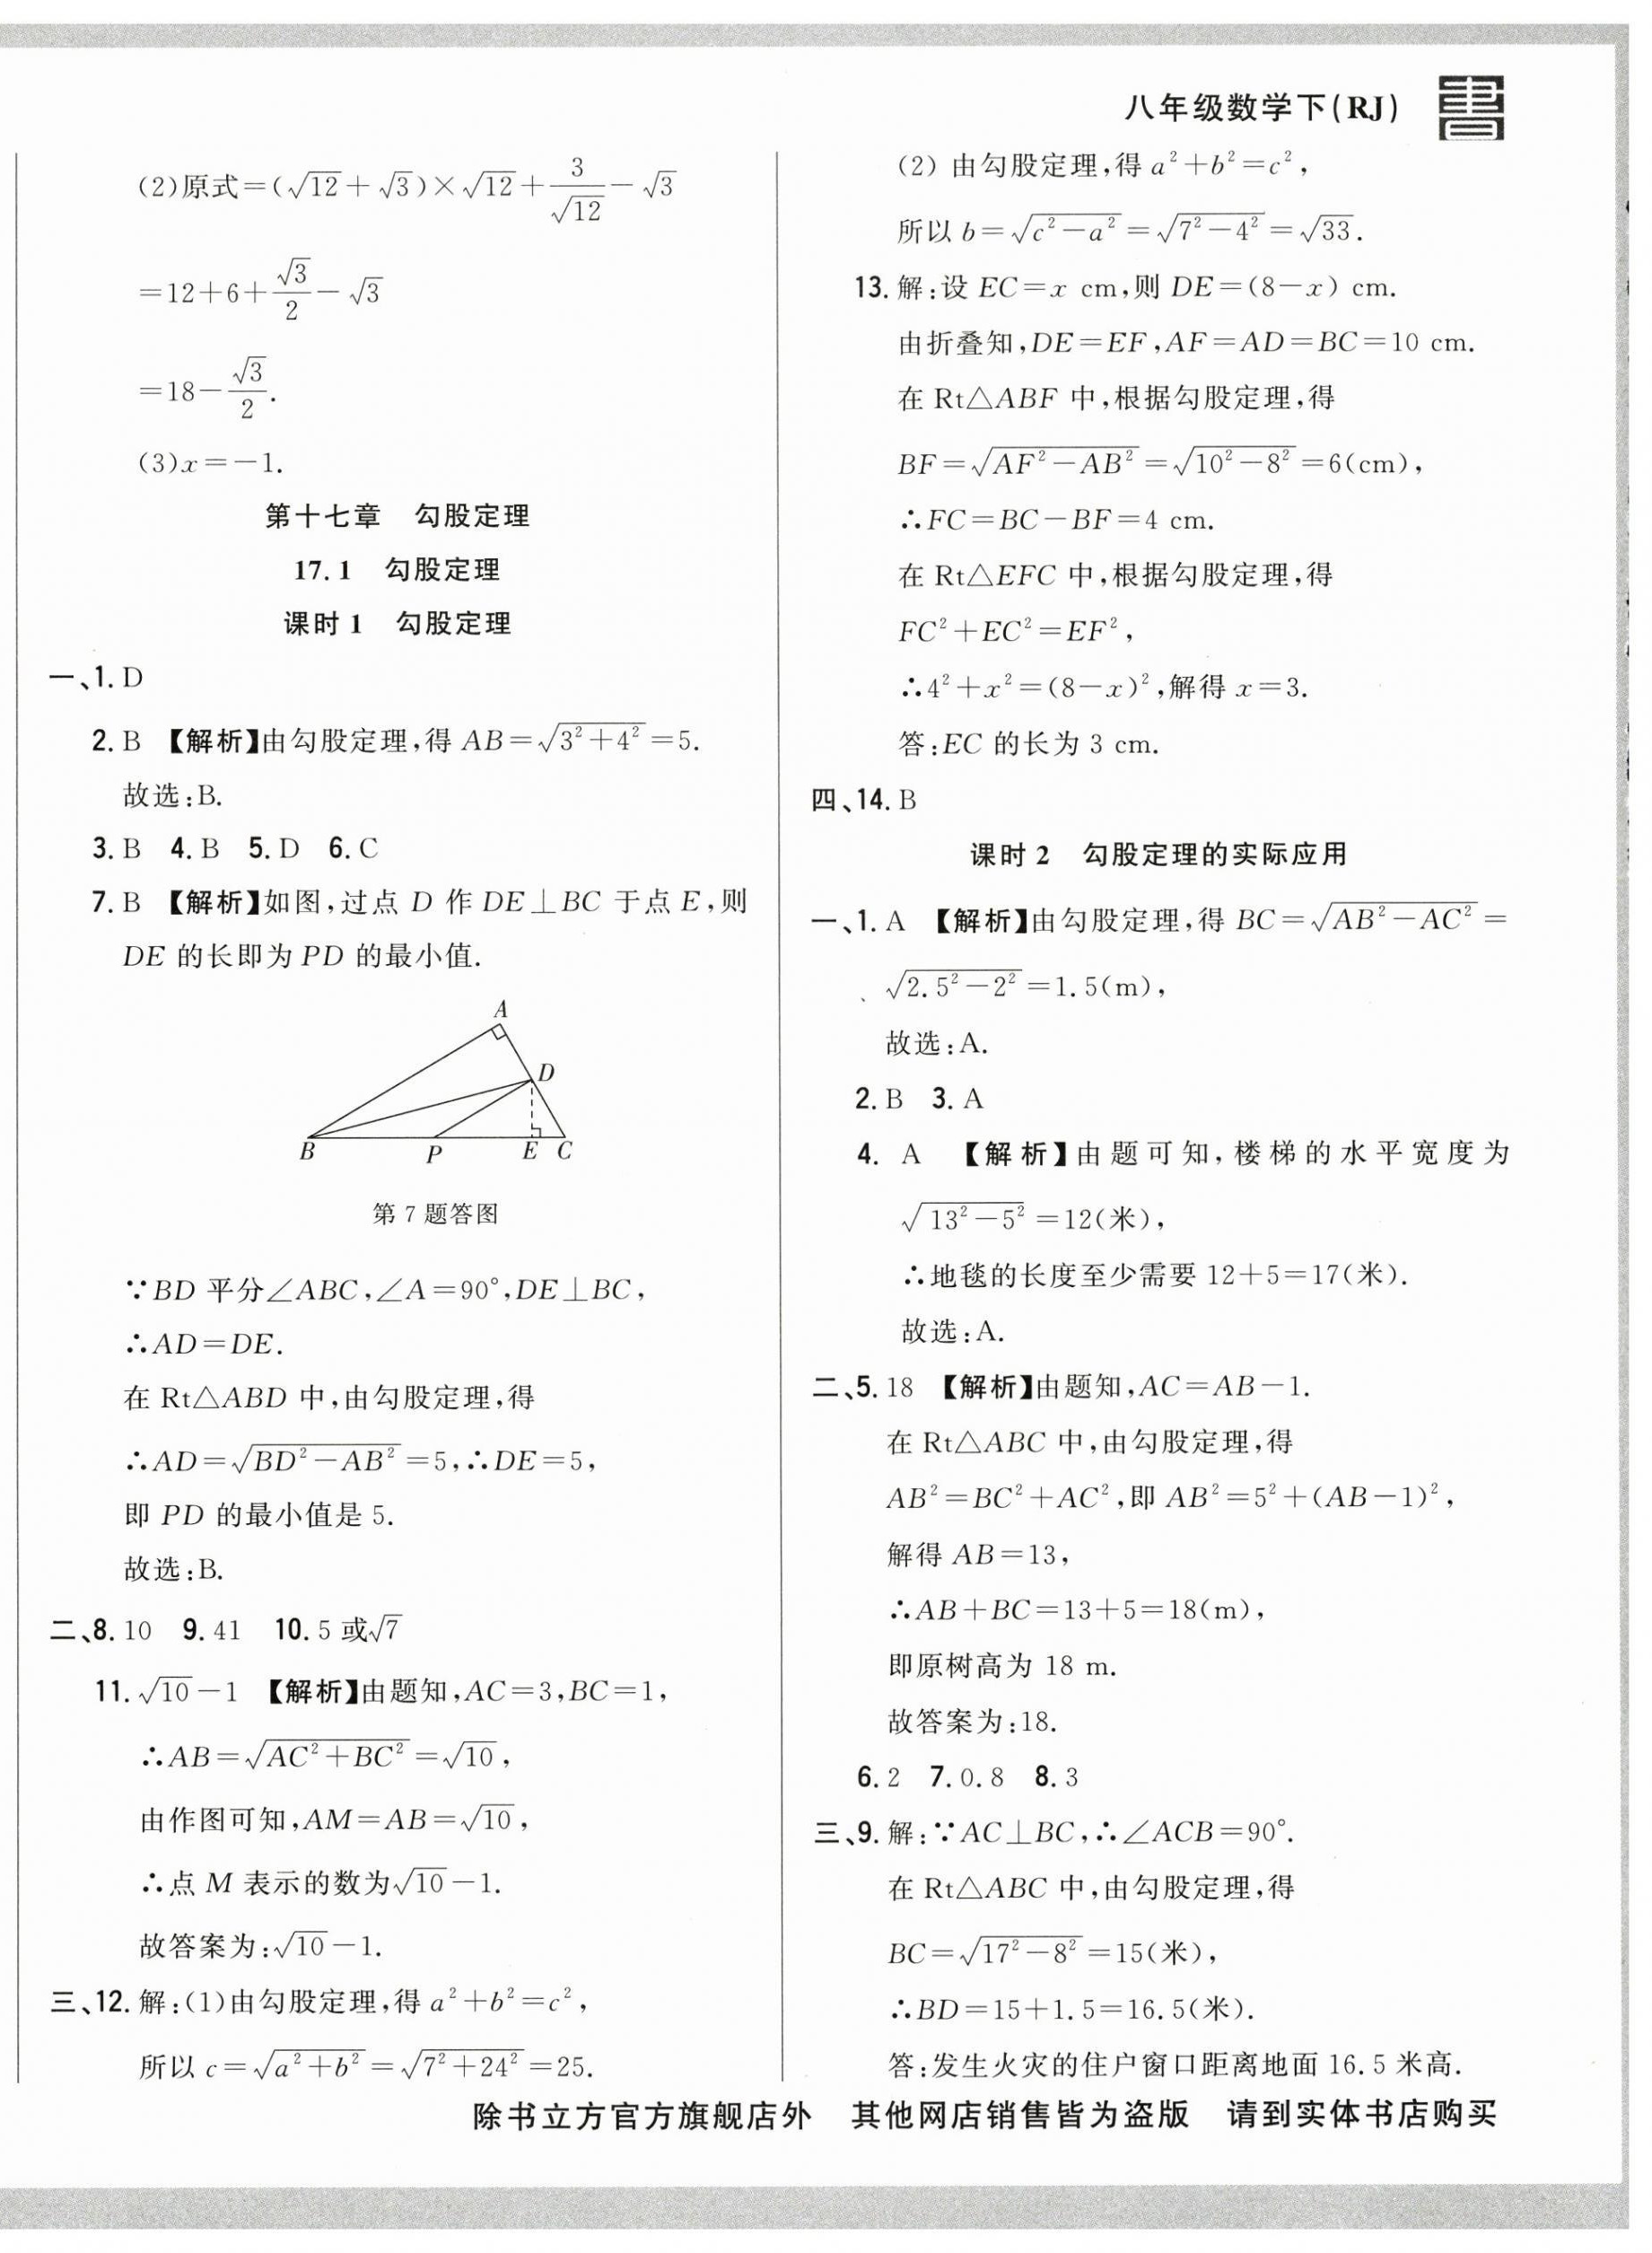 八年级数学下(RJ) 書
(2)原式=(√12+√3)×√12+3/√12-√3
=12+6+√3/2-√3
=18-√3/2.
(3)x=-1.
第十七章 勾股定理
17.1 勾股定理
课时1 勾股定理
一、1. D
2. B 【解析】由勾股定理,得 AB=√(3²+4²)=5.
故选:B.
3. B 4. B 5. D 6. C
7. B 【解析】如图,过点 D 作 DE⊥BC 于点 E,则
DE 的长即为 PD 的最小值.
A
D
B P E C
第 7 题答图
∵BD 平分∠ABC,∠A=90°,DE⊥BC,
∴AD=DE.
在 Rt△ABD 中,由勾股定理,得
∴AD=√(BD²-AB²)=5,∴DE=5,
即 PD 的最小值是 5.
故选:B.
二、8. 10 9. 41 10. 5 或√7
11. √10-1 【解析】由题知,AC=3,BC=1,
∴AB=√(AC²+BC²)=√10,
由作图可知,AM=AB=√10,
∴点 M 表示的数为√10-1.
故答案为:√10-1.
三、12. 解:(1)由勾股定理,得 a²+b²=c²,
所以 c=√(a²+b²)=√(7²+24²)=25.
(2) 由勾股定理,得 a²+b²=c²,
所以 b=√(c²-a²)=√(7²-4²)=√33.
13. 解:设 EC=x cm,则 DE=(8-x) cm.
由折叠知,DE=EF,AF=AD=BC=10 cm.
在 Rt△ABF 中,根据勾股定理,得
BF=√(AF²-AB²)=√(10²-8²)=6(cm),
∴FC=BC-BF=4 cm.
在 Rt△EFC 中,根据勾股定理,得
FC²+EC²=EF²,
∴4²+x²=(8-x)²,解得 x=3.
答:EC 的长为 3 cm.
四、14. B
课时2 勾股定理的实际应用
一、1. A 【解析】由勾股定理,得 BC=√(AB²-AC²)=
√(2.5²-2²)=1.5(m),
故选:A.
2. B 3. A
4. A 【解析】由题可知,楼梯的水平宽度为
√(13²-5²)=12(米),
∴地毯的长度至少需要 12+5=17(米).
故选:A.
二、5. 18 【解析】由题知,AC=AB-1.
在 Rt△ABC 中,由勾股定理,得
AB²=BC²+AC²,即 AB²=5²+(AB-1)²,
解得 AB=13,
∴AB+BC=13+5=18(m),
即原树高为 18 m.
故答案为:18.
6. 2 7. 0.8 8. 3
三、9. 解:∵AC⊥BC,∴∠ACB=90°.
在 Rt△ABC 中,由勾股定理,得
BC=√(17²-8²)=15(米),
∴BD=15+1.5=16.5(米).
答:发生火灾的住户窗口距离地面 16.5 米高.
除书立方官方旗舰店外 其他网店销售皆为盗版 请到实体书店购买